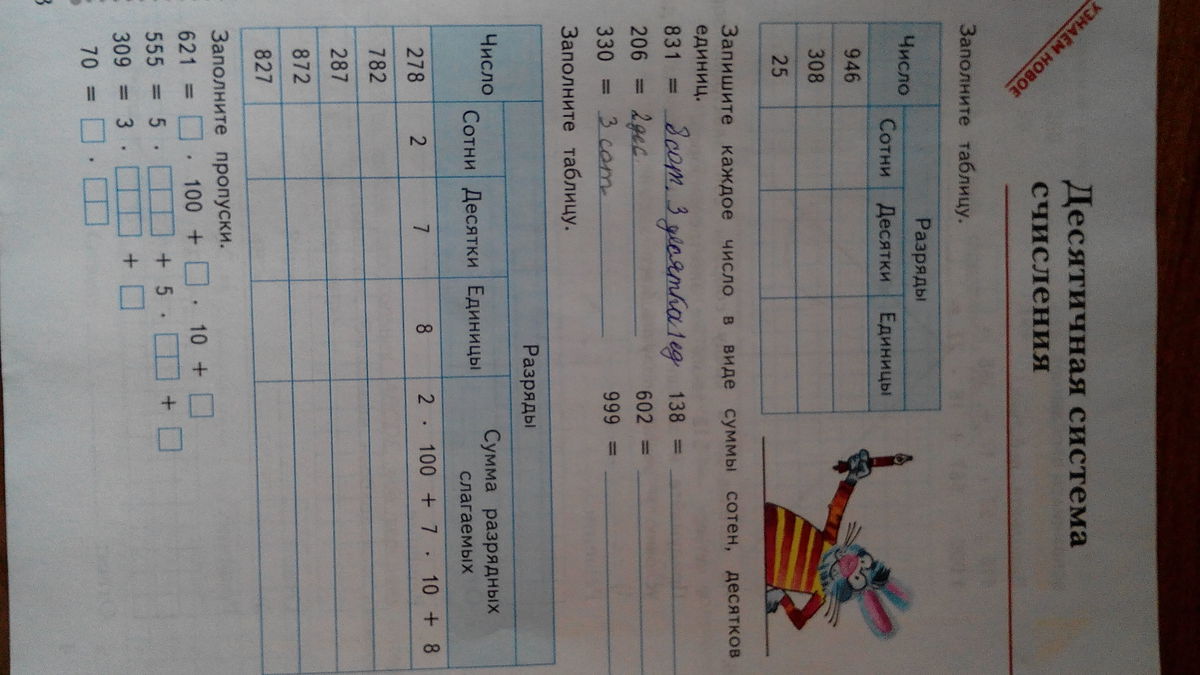 УЗНАЁМ НОВОЕ
Десятичная система
счисления
Заполните таблицу.
Число Разряды
Сотни Десятки Единицы
946
308
25
Запишите каждое число в виде суммы сотен, десятков
единиц.
831 = 8 сот. 3 десятка 1 ед 138 =
206 = 2 дес 602 =
330 = 3 сот 999 =
Заполните таблицу.
Число Разряды
Сотни Десятки Единицы Сумма разрядных слагаемых
278 2 7 8 2 · 100 + 7 · 10 + 8
782
287
872
827
Заполните пропуски.
621 = □ · 100 + □ · 10 + □
555 = 5 · □□□ + 5 · □□ + □
309 = 3 · □□□ + □
70 = □ · □□